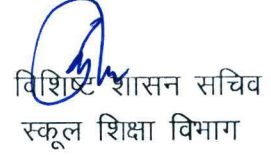 विशिष्ट शासन सचिव
स्कूल शिक्षा विभाग